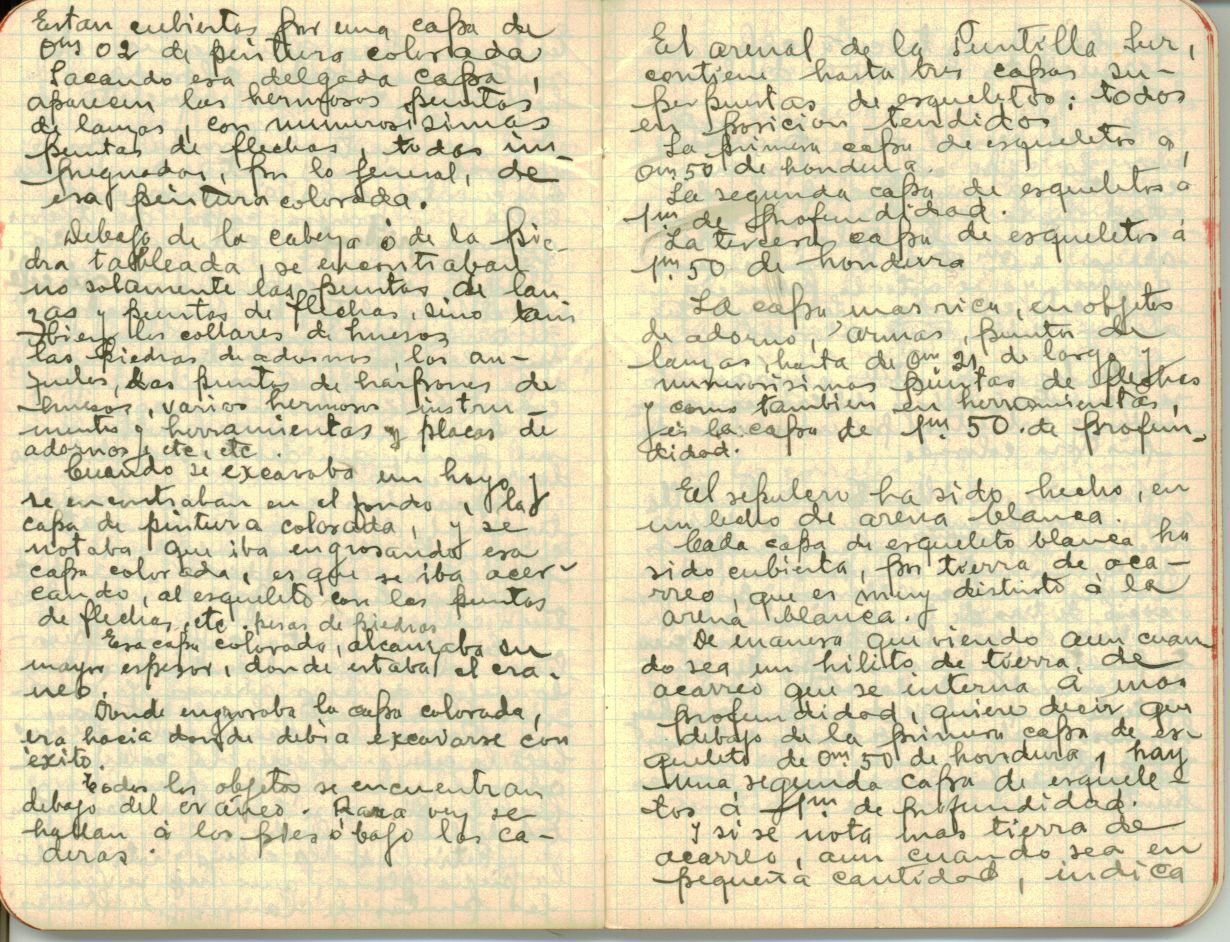 Estan cubiertos por una capa de
0ms 02 de pintura colorada
Sacando esa delgada capa,
aparecen las hermosas puntas
de lanzas, con numerosisimas
puntas de flechas, todas im-
pregnadas, por lo general, de
esa pintura colorada.
Debajo de la cabeza ó de la pie-
dra tableada, se encontraban
no solamente las puntas de lan-
zas y puntas de flechas, sino tam
bien los collares de huesos
las piedras de adornos, los an-
zuelos, las puntas de harpones de
huesos, varios hermosos instru-
mentos y herramientas y placas de
adornos, etc, etc.
Cuando se excavaba un hoyo, y
se encontraban en el fondo, la
capa de pintura colorada, y se
notaba que iba engrosando esa
capa colorada, es que se iba acer-
cando, al esqueleto con las puntas
de flechas, etc. pesas de piedras
Esa capa colorada, alcanzaba su
mayor espesor, donde estaba el cra-
neo.
Donde engrosaba la capa colorada,
era hacia donde debia excavarse con
éxito.
Todos los objetos se encuentran
debajo del craneo. Rara vez se
hallan á los pies ó bajo las ca-
deras.
El arenal de la Puntilla Sur,
contiene hasta tres capas su-
perpuestas de esqueletos; todos
en posicion tendidos.
La primera capa de esqueletos a,
0m 50 de hondura.
La segunda capa de esqueletos a
1m de profundidad.
La tercera capa de esqueletos á
1m 50 de hondura
La capa mas rica, en objetos
de adorno, armas, puntas de
lanzas, hasta de 0m 21 de largo y
numerosisimas puntas de flechas
y como tambien en herramientas,
es la capa de 1m 50. de profun-
didad.
El sepulcro ha sido hecho, en
un lecho de arena blanca.
Cada capa de esqueleto blanca ha
sido cubierta, por tierra de aca-
rreo, que es muy distinto á la
arena blanca.
De manera que viendo aun cuan
do sea un hilito de tierra, de
acarreo que se interna á mas
profundidad, quiere decir que
debajo de la primera capa de es-
queleto de 0m 50 de hondura, hay
una segunda capa de esquele-
tos á 1m de profundidad.
y si se nota mas tierra de
acarreo, aun cuando sea en
pequeña cantidad, indica